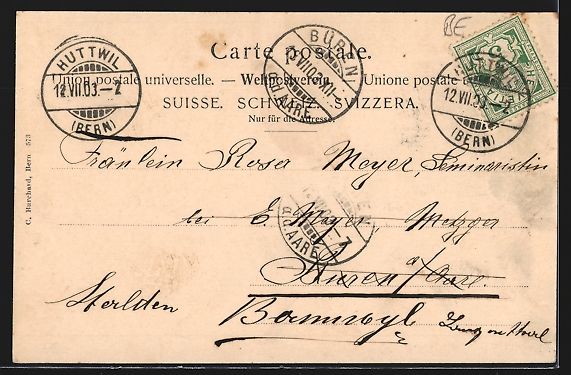 BE
Carte postale.
Union postale universelle. — Weltpostverein. — Unione postale
SUISSE. SCHWEIZ. SVIZZERA.
Nur für die Adresse
HUTTWIL
12.VII.03.–7
(BERN)
BÜREN
a/d. AARE
HUTTWIL
12.VII.03
(BERN)
C. Burchard, Bern 573
Fräulein Rosa Meyer, Seminaristin
bei E. Meyer, Metzger
a/d. AARE
Büren a/Aare.
Stalden